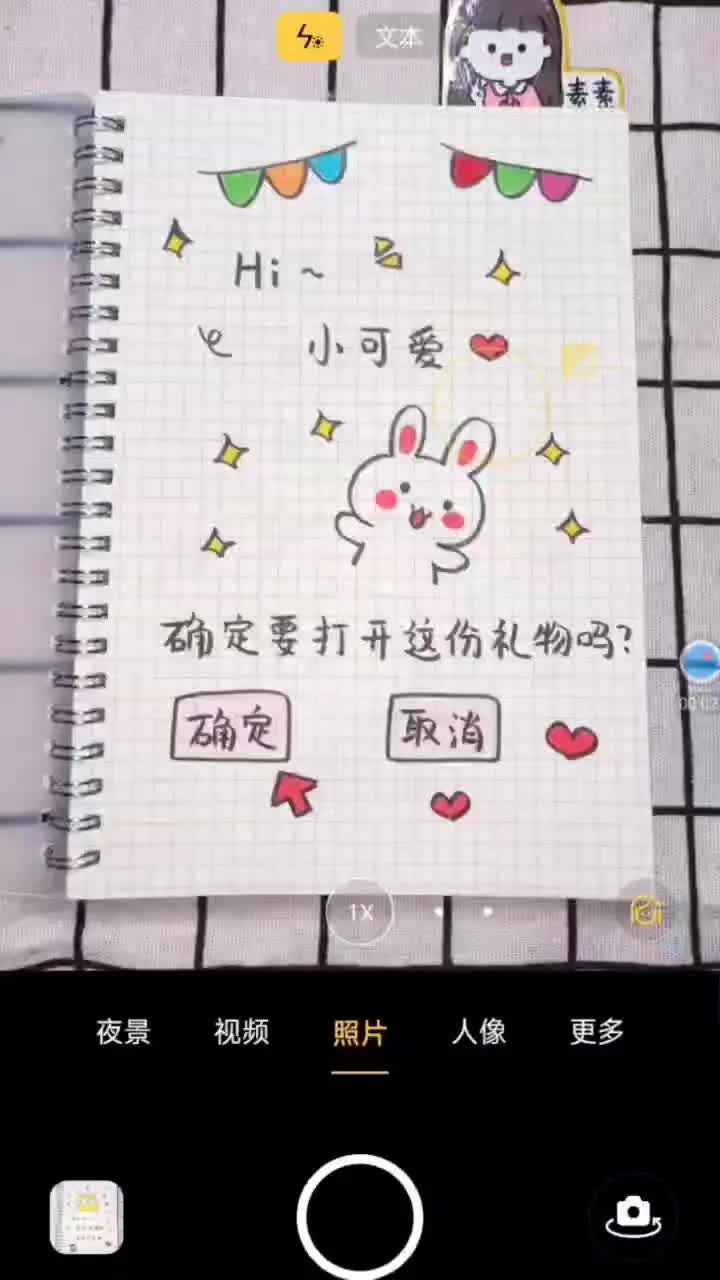 文本
素素
Hi ~
小可爱
确定要打开这份礼物吗?
确定 取消
00:02
1X
夜景 视频 照片 人像 更多